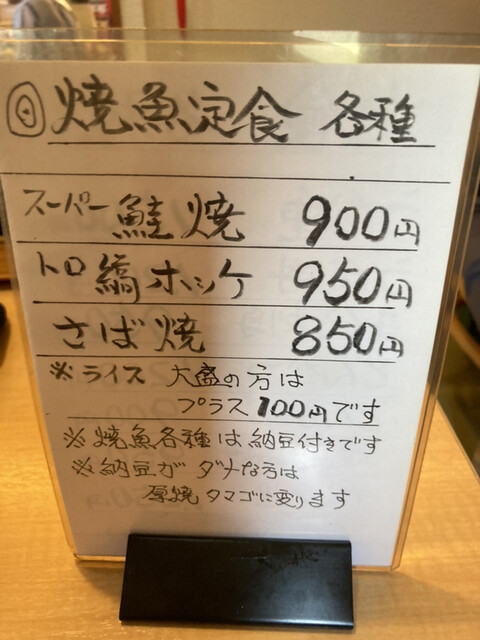 ◎焼魚定食 各種
スーパー鮭焼 900円
トロ縞ホッケ 950円
さば焼 850円
※ライス 大盛の方は
プラス100円です
※焼魚各種は納豆付きです
※納豆がダメな方は
厚焼タマゴに変ります